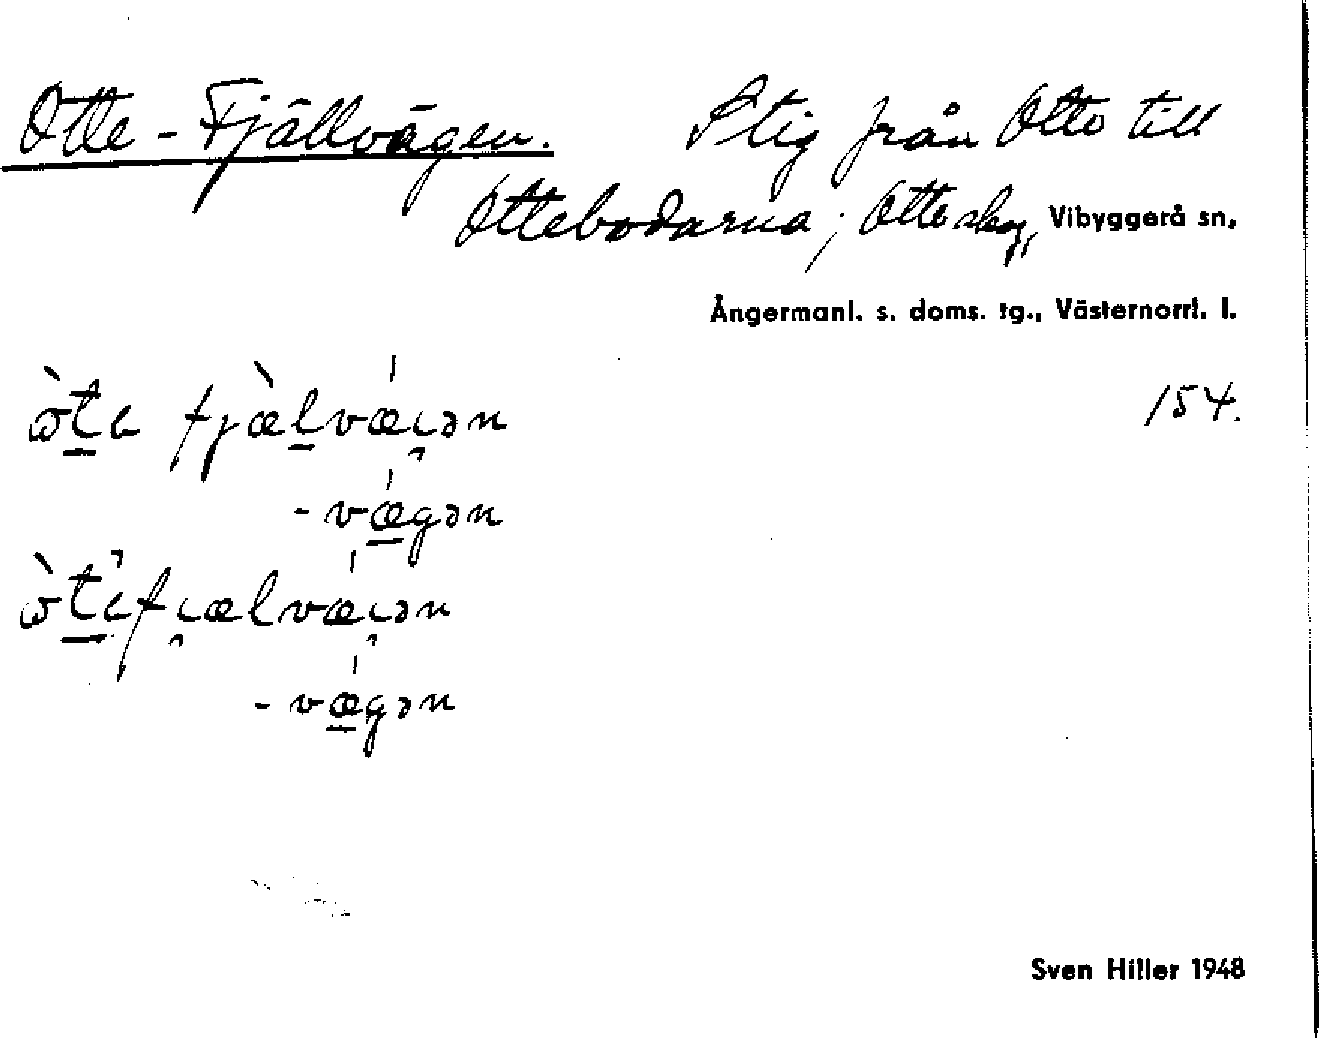 Otte-Fjällvägen. Stig från Otto till
Ottebodarna; Otto skog, Vibyggerå sn,
Ångermanl. s. doms. tg., Västernorrl. l.
154.
-vǽgən
-vǽgən
Sven Hiller 1948